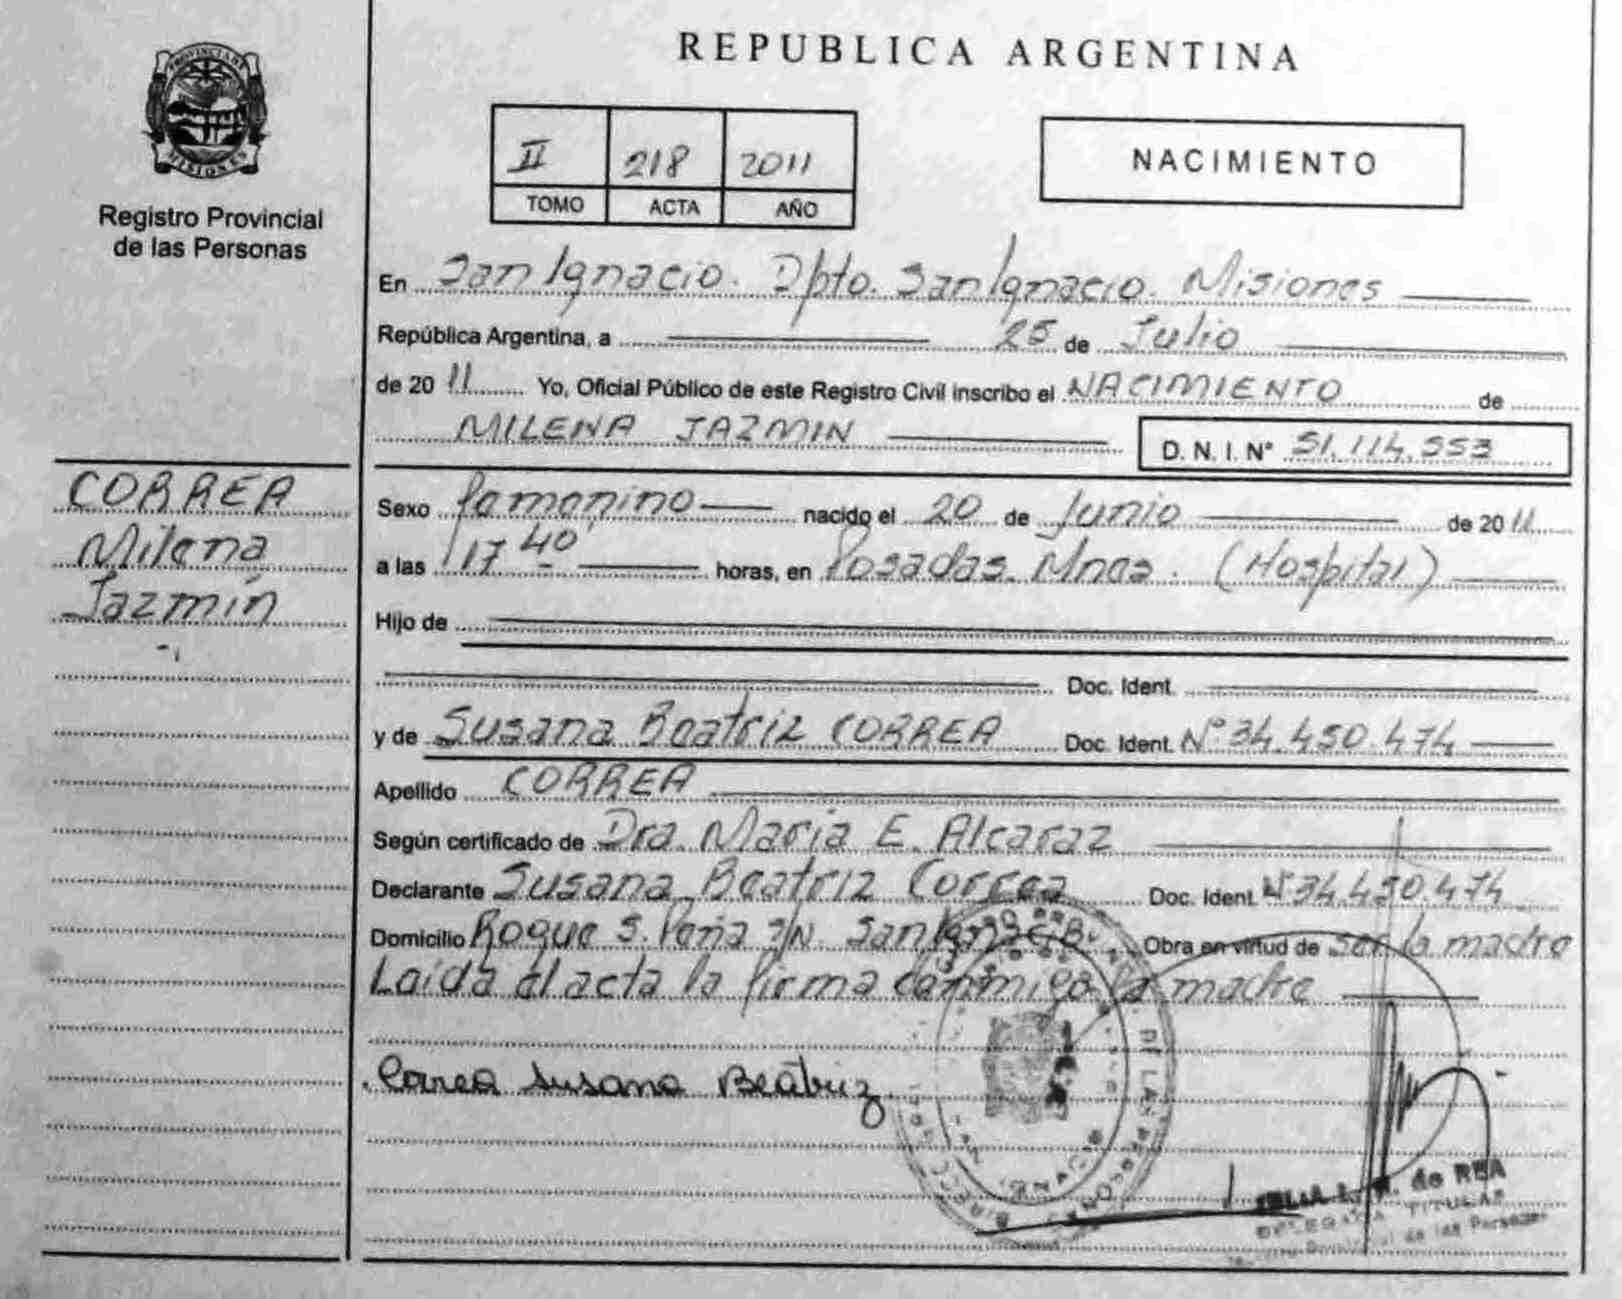 REPUBLICA ARGENTINA
PROVINCIA DE MISIONES
Registro Provincial
de las Personas
II 218 2011
TOMO ACTA AÑO
NACIMIENTO
En San Ignacio. Dpto. San Ignacio. Misiones
República Argentina, a 25 de Julio
de 2011 Yo, Oficial Público de este Registro Civil inscribo el NACIMIENTO de
MILENA JAZMIN D. N. I. N° 51.114.553
CORREA
Milena
Jazmín
Sexo femenino nacido el 20 de Junio de 2011
a las 17 40 horas, en Posadas. Mnes. (Hospital)
Hijo de
Doc. Ident.
y de Susana Beatriz CORREA Doc. Ident. N° 34.450.474
Apellido CORREA
Según certificado de Dra. Maria E. Alcaraz
Declarante Susana Beatriz Correa Doc. Ident. N° 34.450.474
Domicilio Roque S. Peña S/N. San Ignacio. Obra en virtud de ser la madre
Laída el acta la firma conmigo la madre
Correa Susana Beatriz
de REA
DELEGADA TITULAR
Registro Provincial de las Personas